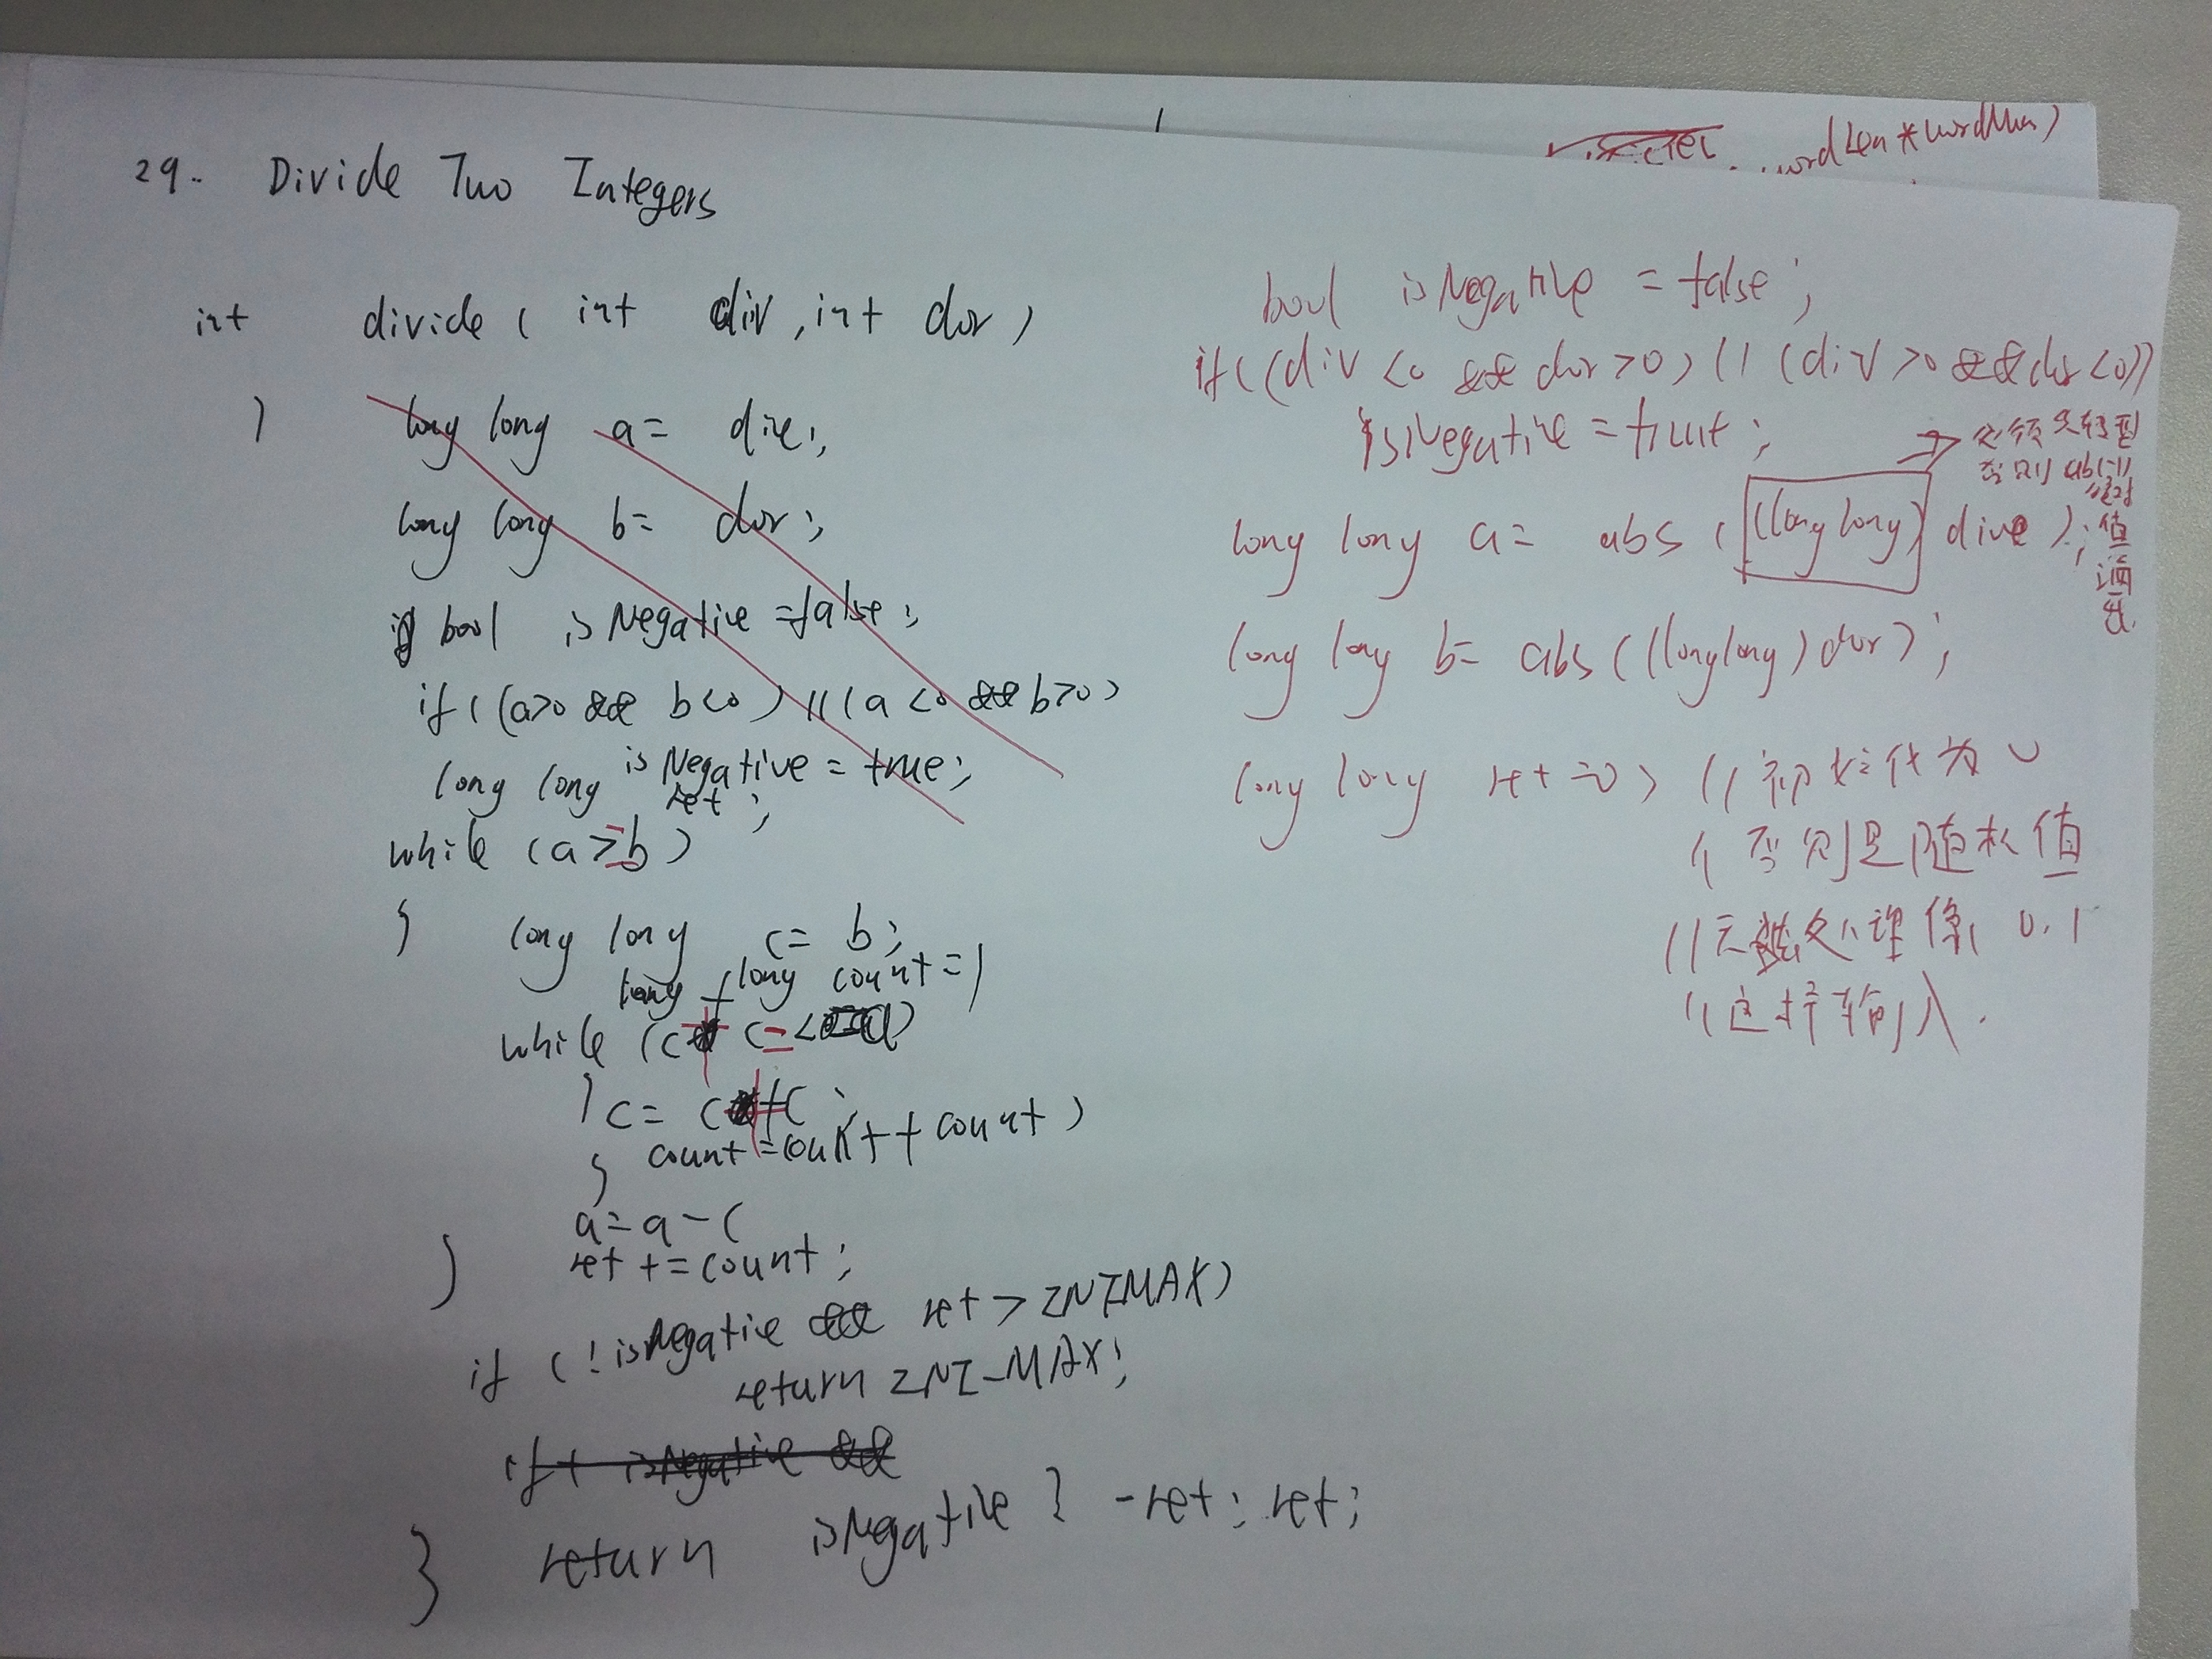 wordLen * wordNum)
29. Divide Two Integers
int divide ( int div, int dor )
{
long long a = dive;
long long b = dor;
bool isNegative = false;
if ((a>0 && b<0) || (a<0 && b>0)
isNegative = true;
long long ret;
while (a>=b)
{ long long c = b;
long long count = 1
while (c + c <= a)
{ c = c + c;
count = count + count)
}
a = a - c
} ret += count;
if (!isNegative && ret > INTMAX)
return INT_MAX;
if ( isNegative &&
} return isNegative ? -ret : ret;
bool isNegative = false;
if ((div <0 && dor >0) || (div >0 && dor <0))
isNegative = true;
必须先转型
否则 abs(-1)
绝对
值
溢
出
long long a = abs ((long long) dive );
long long b = abs ((long long) dor);
long long ret = 0; // 初始化为 0
// 否则是随机值
// 无法处理像 0, 1
// 这样输入.